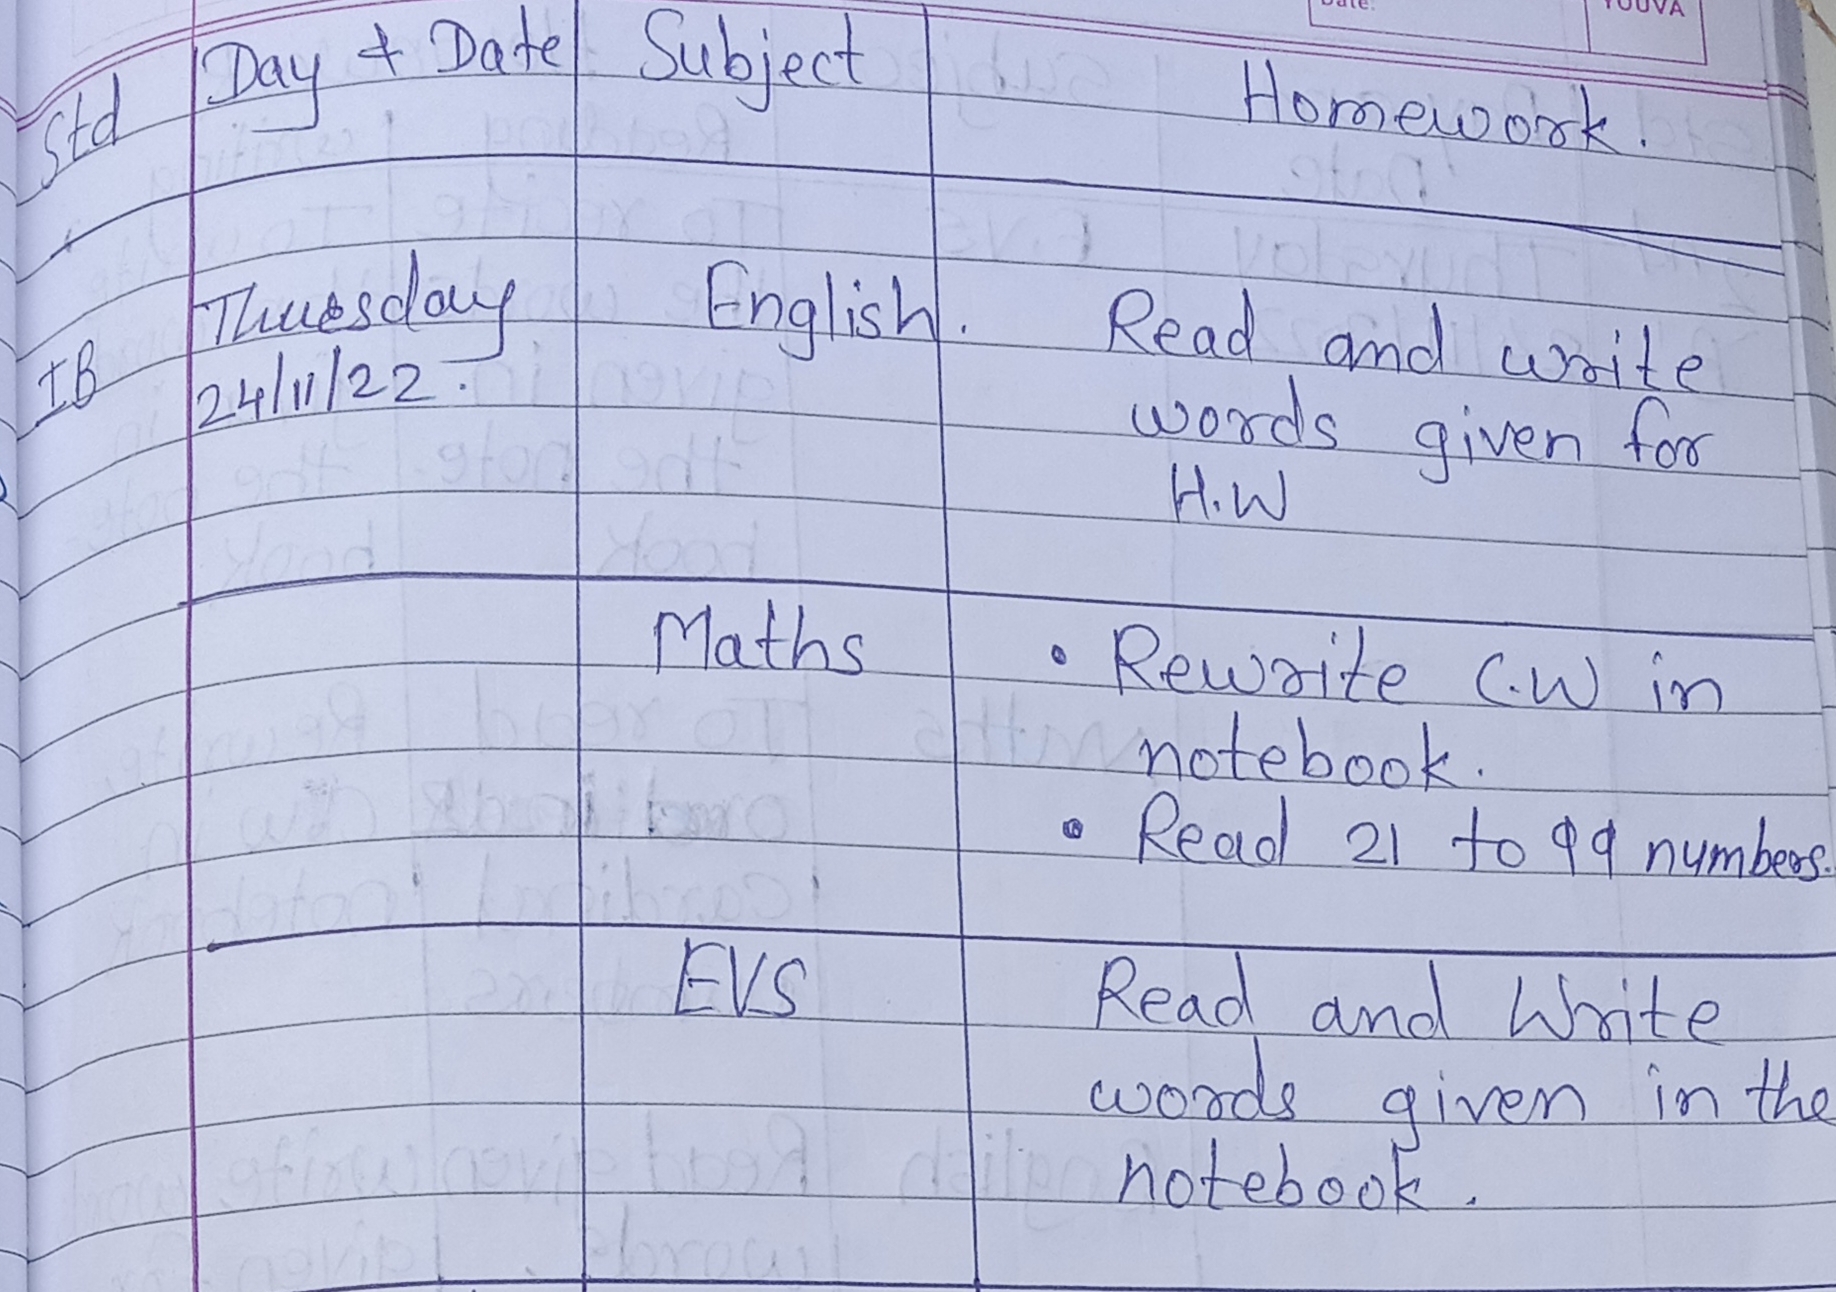 Date:
YOUVA
Std Day & Date Subject Homework.
IB Thuesday English. Read and write
24/11/22. words given for
H.W
Maths • Rewrite C.W in
notebook.
• Read 21 to 99 numbers.
EVS Read and Write
words given in the
notebook.